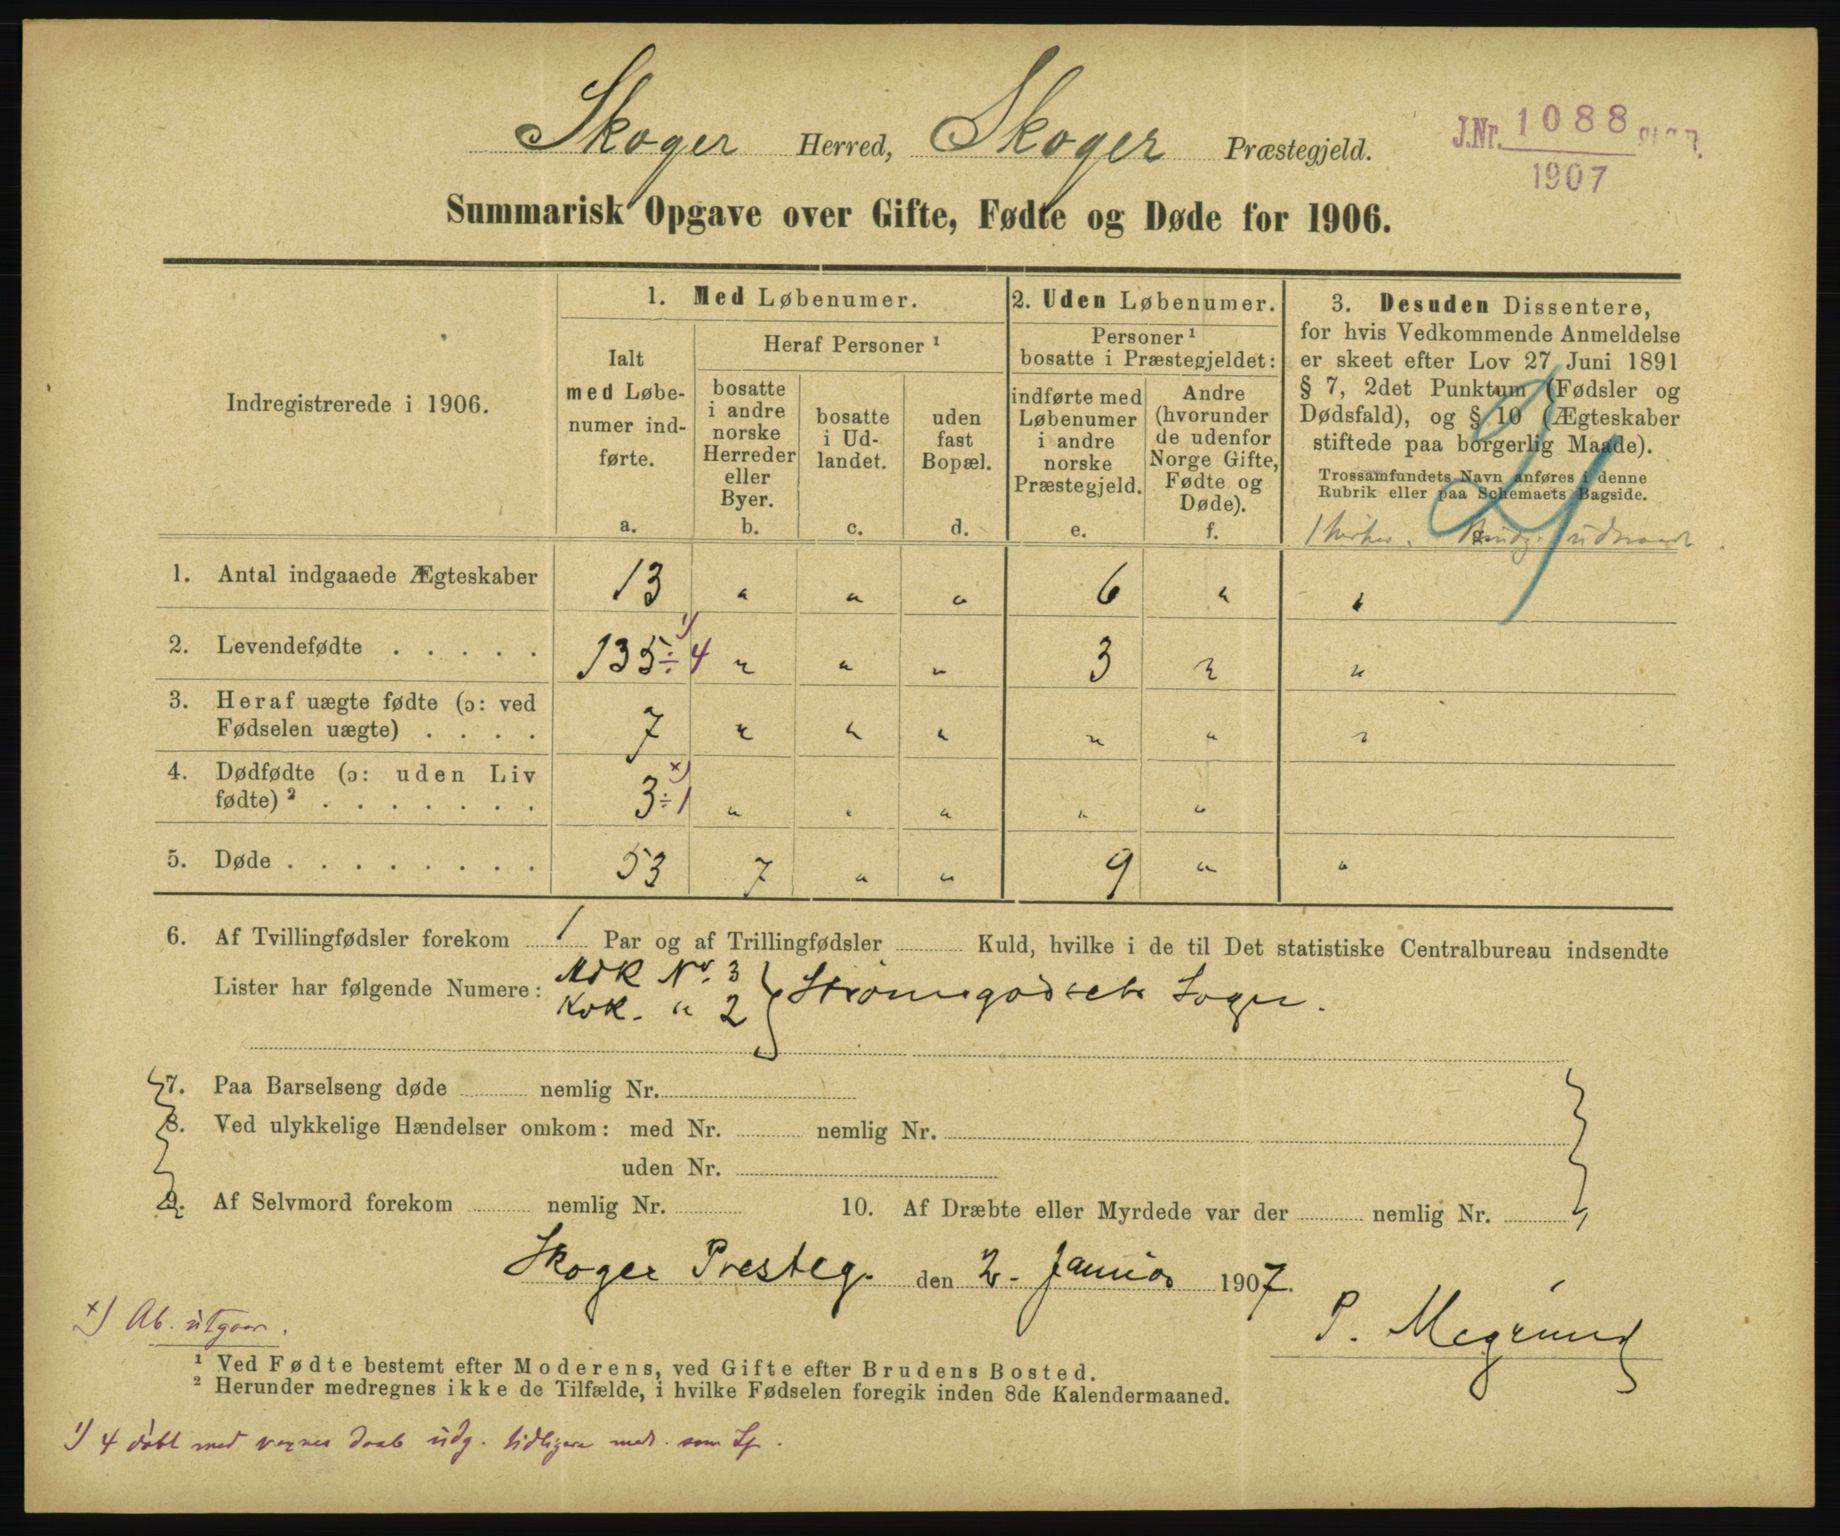 Skoger Herred, Skoger Præstegjeld.
J.Nr. 1088
1907
Summarisk Opgave over Gifte, Fødte og Døde for 1906.
Indregistrerede i 1906.
1. Med Løbenumer.
Ialt
med Løbe-
numer ind-
førte.
a.
Heraf Personer ¹
bosatte
i andre
norske
Herreder
eller
Byer.
b.
bosatte
i Ud-
landet.
c.
uden
fast
Bopæl.
d.
2. Uden Løbenumer.
Personer ¹
bosatte i Præstegjeldet:
indførte med
Løbenumer
i andre
norske
Præstegjeld.
e.
Andre
(hvorunder
de udenfor
Norge Gifte,
Fødte og
Døde).
f.
3. Desuden Dissentere,
for hvis Vedkommende Anmeldelse
er skeet efter Lov 27 Juni 1891
§ 7, 2det Punktum (Fødsler og
Dødsfald), og § 10 (Ægteskaber
stiftede paa borgerlig Maade).
Trossamfundets Navn anføres i denne
Rubrik eller paa Schemaets Bagside.
1. Antal indgaaede Ægteskaber 13 " " " 6 " "
2. Levendefødte . . . . . 135 ÷ 4 ¹) " " " 3 " "
3. Heraf uægte fødte (ɔ: ved
Fødselen uægte) . . . . 7 " " " " " "
4. Dødfødte (ɔ: uden Liv
fødte) ² . . . . . . . 3 ÷ 1 ×) " " " " "
5. Døde . . . . . . . . 53 7 " " 9 " "
6. Af Tvillingfødsler forekom 1 Par og af Trillingfødsler Kuld, hvilke i de til Det statistiske Centralbureau indsendte
Lister har følgende Numere: MdK No. 3
KvK. " 2 } Strømsgodsets Sogn.
7. Paa Barselseng døde nemlig Nr.
8. Ved ulykkelige Hændelser omkom: med Nr. nemlig Nr.
uden Nr.
9. Af Selvmord forekom nemlig Nr. 10. Af Dræbte eller Myrdede var der nemlig Nr.
Skoger Presteg. den 2. Januar 1907.
P. Magnund
×) Ab. utgaar.
¹ Ved Fødte bestemt efter Moderens, ved Gifte efter Brudens Bosted.
² Herunder medregnes ikke de Tilfælde, i hvilke Fødselen foregik inden 8de Kalendermaaned.
¹) 4 døbt med voxnes daab udg. tidligere medr. som Lf.